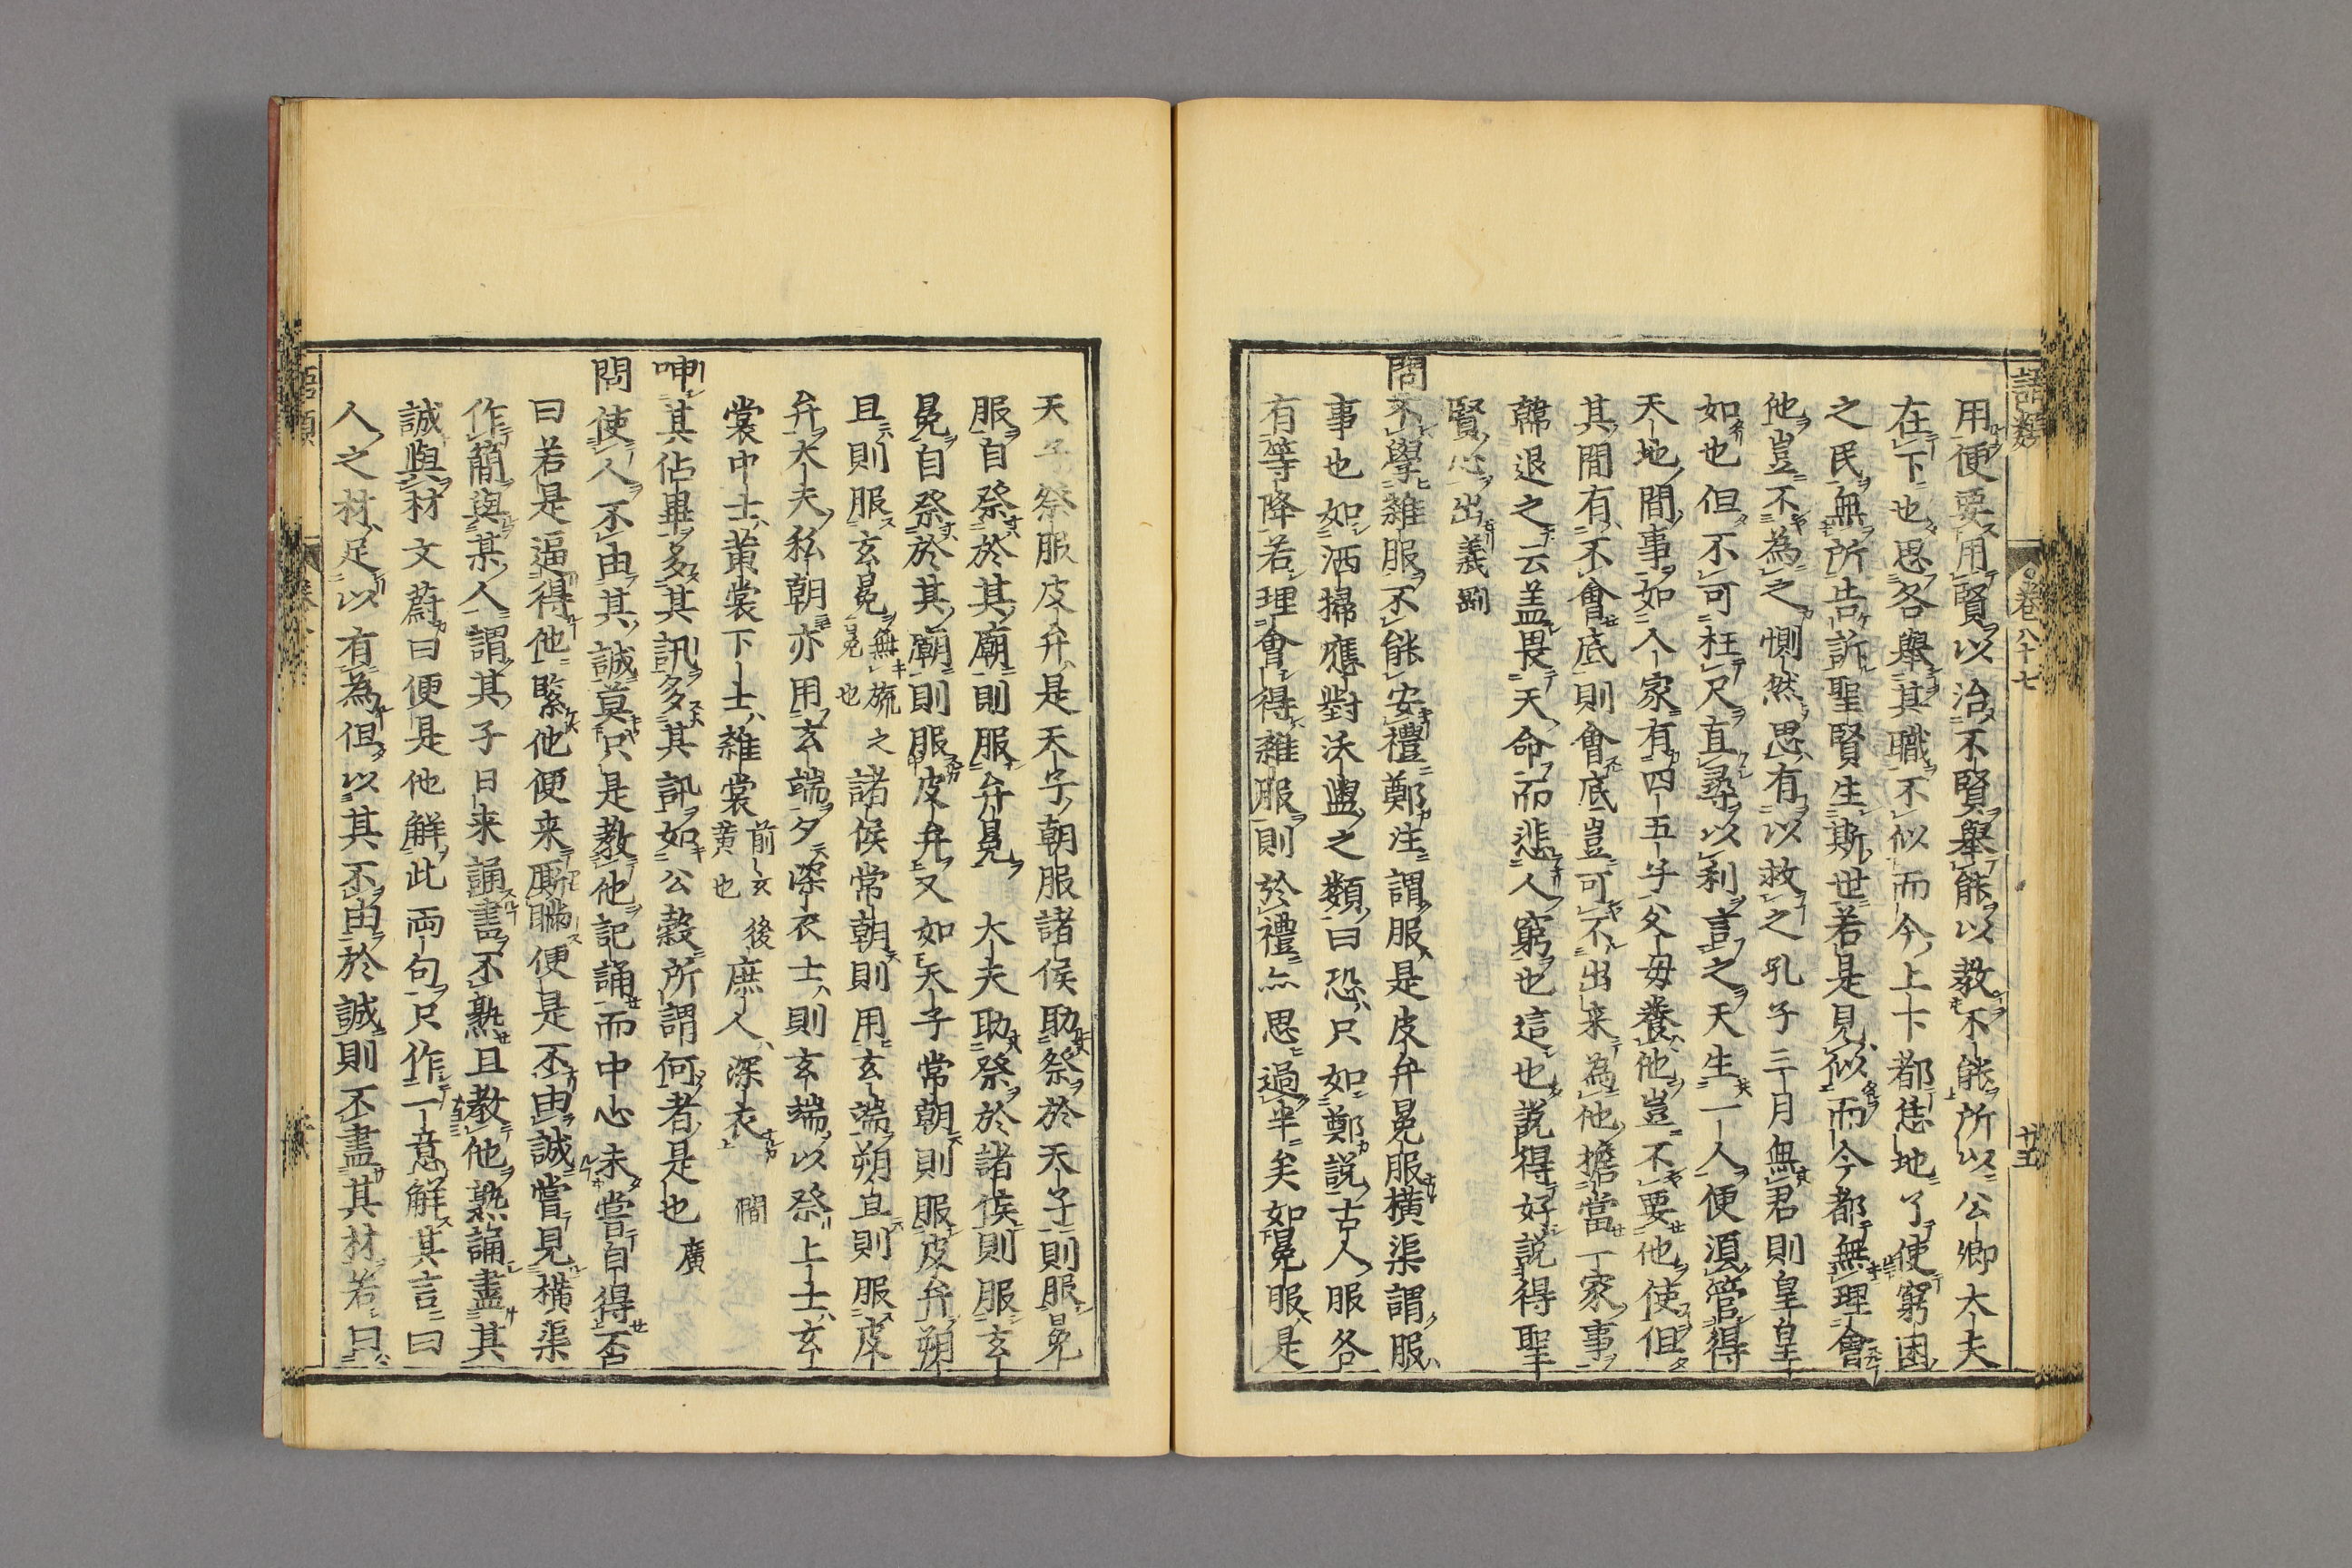 語類 卷八十七 廿五
用便要用賢以治不賢舉能以教不能所以公卿大夫
在下也思各舉其職不似而今上下都恁地了使窮困
之民無所告訴聖賢生斯世若是見似而今都無理會
他豈不為之惻然思有以救之孔子三月無君則皇皇
如也但不可枉尺直尋以利言之天生一人便須管得
天地間事如人家有四五子父母養他豈不要他使但
其間有不會底則會底豈可不出来為他擔當一家事
韓退之云盖畏天命而悲人窮也這也說得好說得聖
賢心出義剛
問不學雜服不能安禮鄭注謂服是皮弁冕服橫渠謂服
事也如洒掃應對沃盥之類曰恐只如鄭說古人服各
有等降若理會得雜服則於禮亦思過半矣如冕服是
天子祭服皮弁是天子朝服諸侯助祭於天子則服冕
服自祭於其廟則服玄冕大夫助祭於諸侯則服玄
冕自祭於其廟則服皮弁又如天子常朝則服皮弁朔
旦則服玄冕無旒之冕也諸侯常朝則用玄端朔旦則服皮
弁大夫私朝亦用玄端夕深衣士則玄端以祭上士玄
裳中士黃裳下士雜裳前玄後黃也庶人深衣僩
呻其佔畢多其訊多其訊如公穀所謂何者是也廣
問使人不由其誠莫只是教他記誦而中心未嘗自得否
曰若是逼得他緊他便来厮瞞便是不由誠嘗見橫渠
作簡與某人謂其子日来誦書不熟且教他熟誦盡其
誠與材文蔚曰便是他解此両句只作一意解其言曰
人之材足以有為但以其不由於誠則不盡其材若曰
語類